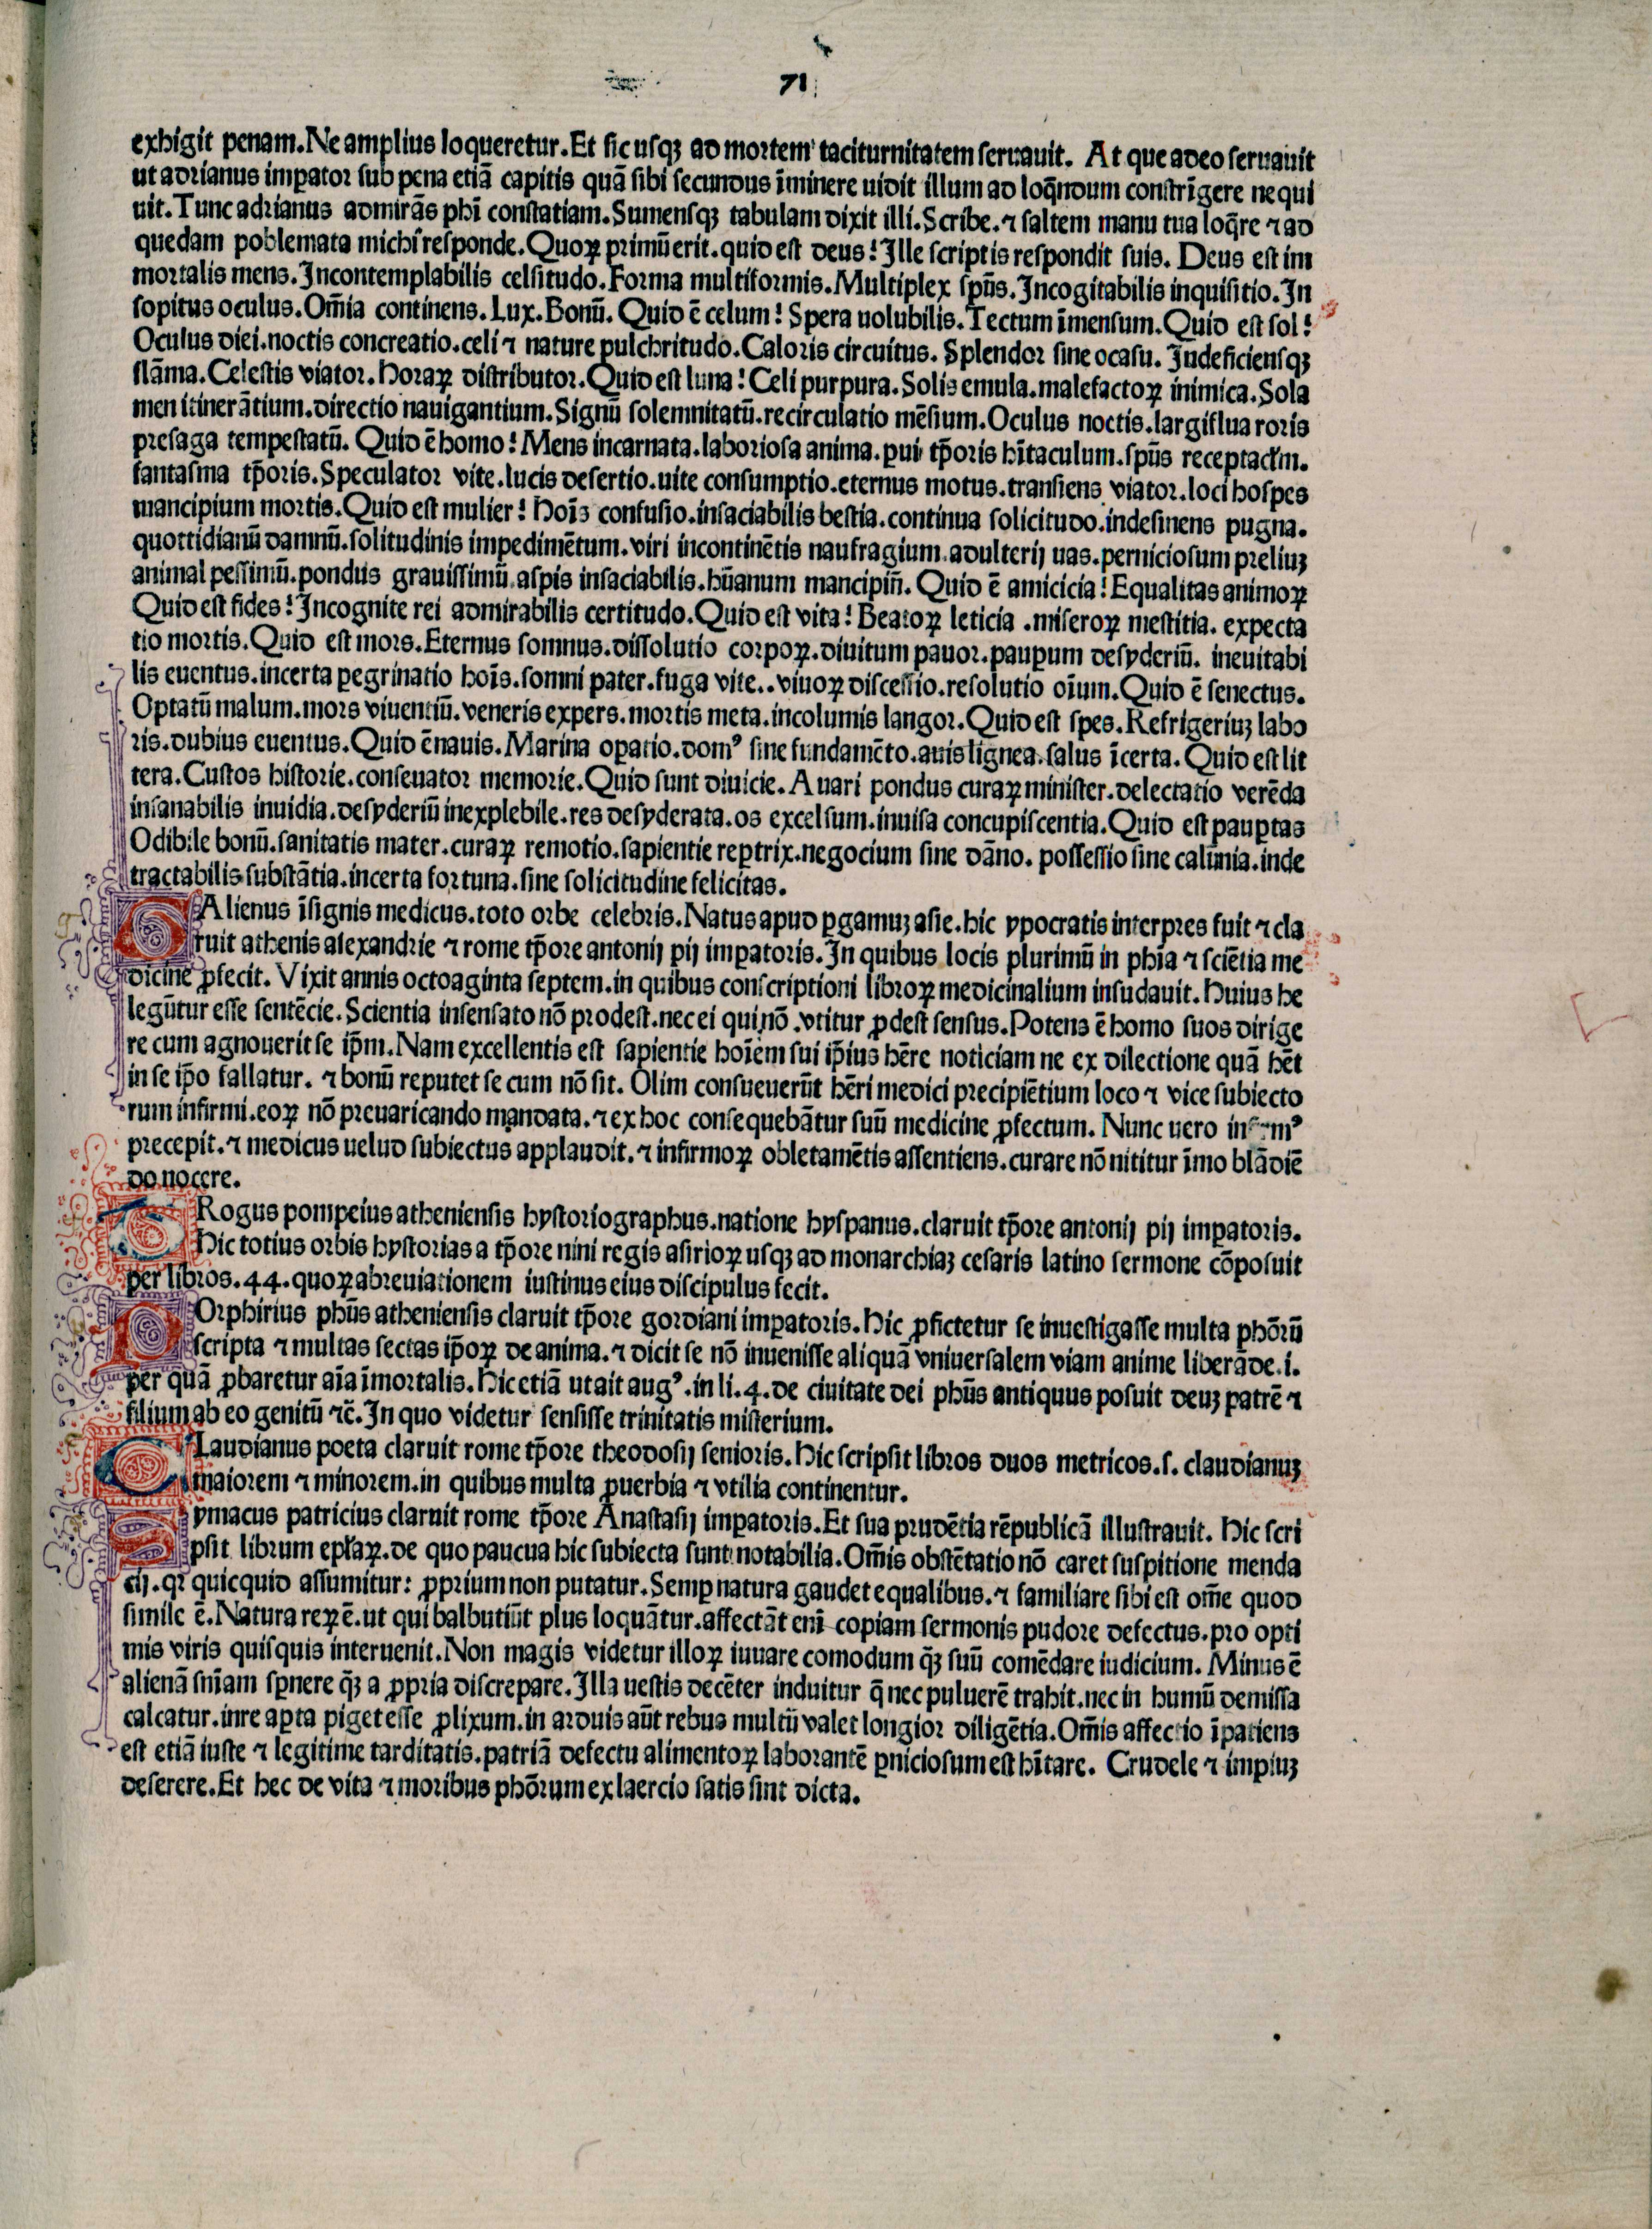 71
exhigit penam. Ne amplius loqueretur. Et sic usqꝫ ad mortem taciturnitatem seruauit. At que adeo seruauit
ut adrianus imꝑator sub pena etiā capitis quā sibi secundus īminere uidit illum ad loq̄ndum constrīgere nequi
uit. Tunc adrianus admirās phī constatiam. Sumensqꝫ tabulam dixit illi. Scribe. ⁊ saltem manu tua loq̄re ⁊ ad
quedam poblemata michi responde. Quoꝝ primū erit. quid est deus? Ille scriptis respondit suis. Deus est im
mortalis mens. Incontemplabilis celsitudo. Forma multiformis. Multiplex spūs. Incogitabilis inquisitio. In
sopitus oculus. Om̄ia continens. Lux. Bonū. Quid ē celum? Spera uolubilis. Tectum īmensum. Quid est sol?
Oculus diei. noctis concreatio. celi ⁊ nature pulchritudo. Caloris circuitus. Splendor sine ocasu. Indeficiensqꝫ
flāma. Celestis viator. horaꝝ distributor. Quid est luna? Celi purpura. Solis emula. malefactoꝝ inimica. Sola
men itinerātium. directio nauigantium. Signū solemnitatū. recirculatio mēsium. Oculus noctis. largiflua roris
presaga tempestatū. Quid ē homo? Mens incarnata. laboriosa anima. ꝑui tꝑ̄oris hītaculum. spūs receptacłm.
fantasma tꝑ̄oris. Speculator vite. lucis desertio. uite consumptio. eternus motus. transiens viator. loci hospes
mancipium mortis. Quid est mulier? hoīs confusio. insaciabilis bestia. continua solicitudo. indesinens pugna.
quottidianū damnū. solitudinis impedimētum. viri incontinētis naufragium. adulterij uas. perniciosum preliuꝫ
animal pessimū. pondus grauissimū. aspis insaciabilis. hūanum mancipiū. Quid ē amicicia? Equalitas animoꝝ
Quid est fides? Incognite rei admirabilis certitudo. Quid est vita? Beatoꝝ leticia. miseroꝝ mestitia. expecta
tio mortis. Quid est mors. Eternus somnus. dissolutio corpoꝝ. diuitum pauor. pauꝑum desyderiū. ineuitabi
lis euentus. incerta ꝑegrinatio hoīs. somni pater. fuga vite.. viuoꝝ discessio. resolutio oīum. Quid ē senectus.
Optatū malum. mors viuentiū. veneris expers. mortis meta. incolumis langor. Quid est spes. Refrigeriuꝫ labo
ris. dubius euentus. Quid ē nauis. Marina oꝑatio. domꝰ sine fundamēto. auis lignea. salus īcerta. Quid est lit
tera. Custos historie. conseuator memorie. Quid sunt diuicie. Auari pondus curaꝝ minister. delectatio verēda
insanabilis inuidia. desyderiū inexplebile. res desyderata. os excelsum. inuisa concupiscentia. Quid est pauꝑtas
Odibile bonū. sanitatis mater. curaꝝ remotio. sapientie reꝑtrix. negocium sine dāno. possessio sine calūnia. inde
tractabilis substātia. incerta fortuna. sine solicitudine felicitas.
GAlienus īsignis medicus. toto orbe celebris. Natus apud ꝑgamuꝫ asie. hic ypocratis interpres fuit ⁊ cla
ruit athenis alexandrie ⁊ rome tꝑ̄ore antonij pij imꝑatoris. In quibus locis plurimū in phīa ⁊ sciētia me
dicine ꝓfecit. Vixit annis octoaginta septem. in quibus conscriptioni libroꝝ medicinalium insudauit. Huius he
legūtur esse sentēcie. Scientia insensato nō prodest. nec ei qui nō vtitur ꝓdest sensus. Potens ē homo suos dirige
re cum agnouerit se ip̄m. Nam excellentis est sapientie hoīem sui ip̄ius hēre noticiam ne ex dilectione quā hēt
in se ip̄o fallatur. ⁊ bonū reputet se cum nō sit. Olim consueuerūt hēri medici precipiētium loco ⁊ vice subiecto
rum infirmi. eoꝝ nō preuaricando mandata. ⁊ ex hoc consequebātur suū medicine ꝓfectum. Nunc uero
precepit. ⁊ medicus uelud subiectus applaudit. ⁊ infirmoꝝ obletamētis assentiens. curare nō nititur īmo blādiē
do nocere.
TRogus pompeius atheniensis hystoriographus. natione hyspanus. claruit tꝑ̄ore antonij pij imꝑatoris.
Hic totius orbis hystorias a tꝑ̄ore nini regis asirioꝝ usqꝫ ad monarchiaꝫ cesaris latino sermone cōposuit
per libros. 44. quoꝝ abreuiationem iustinus eius discipulus fecit.
POrphirius phūs atheniensis claruit tꝑ̄ore gordiani imꝑatoris. Hic ꝓfictetur se inuestigasse multa phōrū
scripta ⁊ multas sectas ip̄oꝝ de anima. ⁊ dicit se nō inuenisse aliquā vniuersalem viam anime liberāde. i.
per quā ꝓbaretur aīa īmortalis. Hic etiā ut ait augꝰ. in li. 4. de ciuitate dei phūs antiquus posuit deuꝫ patrē ⁊
filium ab eo genitū ⁊c̄. In quo videtur sensisse trinitatis misterium.
CLaudianus poeta claruit rome tꝑ̄ore theodosij senioris. Hic scripsit libros duos metricos. s. claudianuꝫ
maiorem ⁊ minorem. in quibus multa ꝓuerbia ⁊ vtilia continentur.
Symacus patricius claruit rome tꝑ̄ore Anastasij imꝑatoris. Et sua prudētia rēpublicā illustrauit. Hic scri
psit librum epłaꝝ. de quo paucua hic subiecta sunt notabilia. Om̄is obstētatio nō caret suspitione menda
cij. qꝛ quicquid assumitur: ꝓprium non putatur. Semꝑ natura gaudet equalibus. ⁊ familiare sibi est om̄e quod
simile ē. Natura reꝝ ē. ut qui balbutiūt plus loquātur. affectāt enī copiam sermonis pudore defectus. pro opti
mis viris quisquis interuenit. Non magis videtur illoꝝ iuuare comodum q̄ꝫ suū comēdare iudicium. Minus ē
alienā sn̄iam sꝑnere q̄ꝫ a ꝓpria discrepare. Illa uestis decēter induitur q̄ nec puluerē trahit. nec in humū demissa
calcatur. in re aꝑta piget esse ꝓlixum. in arduis aūt rebus multū valet longior diligētia. Om̄is affectio īpatiens
est etiā iuste ⁊ legitime tarditatis. patriā defectu alimentoꝝ laborantē ꝑniciosum est hītare. Crudele ⁊ impiuꝫ
deserere. Et hec de vita ⁊ moribus phōrum ex laercio satis sint dicta.